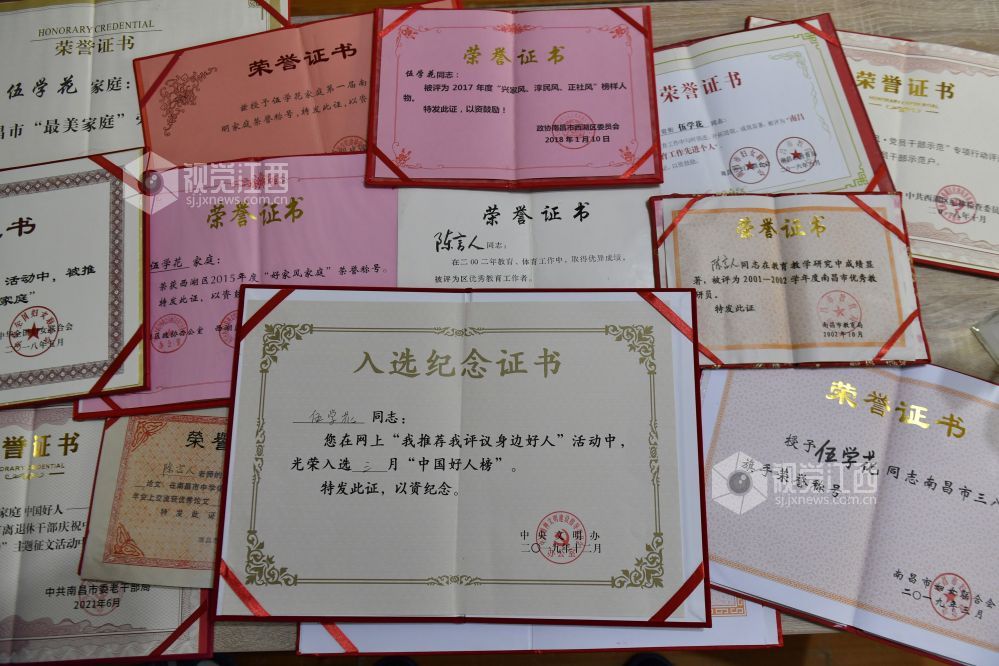 HONORARY CREDENTIAL
荣誉证书
伍学花 家庭：
昌市“最美家庭”
荣誉证书
兹授予伍学花家庭第一届南
明家庭荣誉称号，特发此证，以资
荣誉证书
伍学花同志：
被评为 2017 年度“兴家风、淳民风、正社风”榜样人
物。
特发此证，以资鼓励！
政协南昌市西湖区委员会
2018 年 1 月 10 日
荣誉证书
伍学花 同志：
育工作先进个人”。
荣誉证书
HONORARY CREDENTIAL
党员干部示范”专项行动评
员干部示范户。
视觉江西
sj.jxnews.com.cn
视觉江西
sj.jxnews.com.cn
书
活动中，被推
家庭”
荣誉证书
伍学花 家庭：
荣获西湖区2015年度“好家风家庭”荣誉称号。
荣誉证书
陈言人 同志：
在二00二年教育、体育工作中，取得优异成绩，
被评为区优秀教育工作者。
荣誉证书
陈言人同志在教育教学研究中成绩显
著，被评为2001—2002学年度南昌市优秀教
研员。
特发此证
南昌市教育局
2002 年 10 月
入选纪念证书
伍学花 同志：
您在网上“我推荐我评议身边好人”活动中，
光荣入选 三 月“中国好人榜”。
特发此证，以资纪念。
中央文明办
二〇一九年十二月
誉证书
HONORARY CREDENTIAL
家庭 中国好人——
离退休干部庆祝中
”主题征文活动中
中共南昌市委老干部局
2021年6月
荣誉
陈言人 老师的
特发此证
荣誉证书
授予伍学花同志南昌市三八
旗手荣誉称号。
南昌市妇女联合会
二〇一九年三月
视觉江西
sj.jxnews.com.cn
视觉江西
sj.jxnews.com.cn